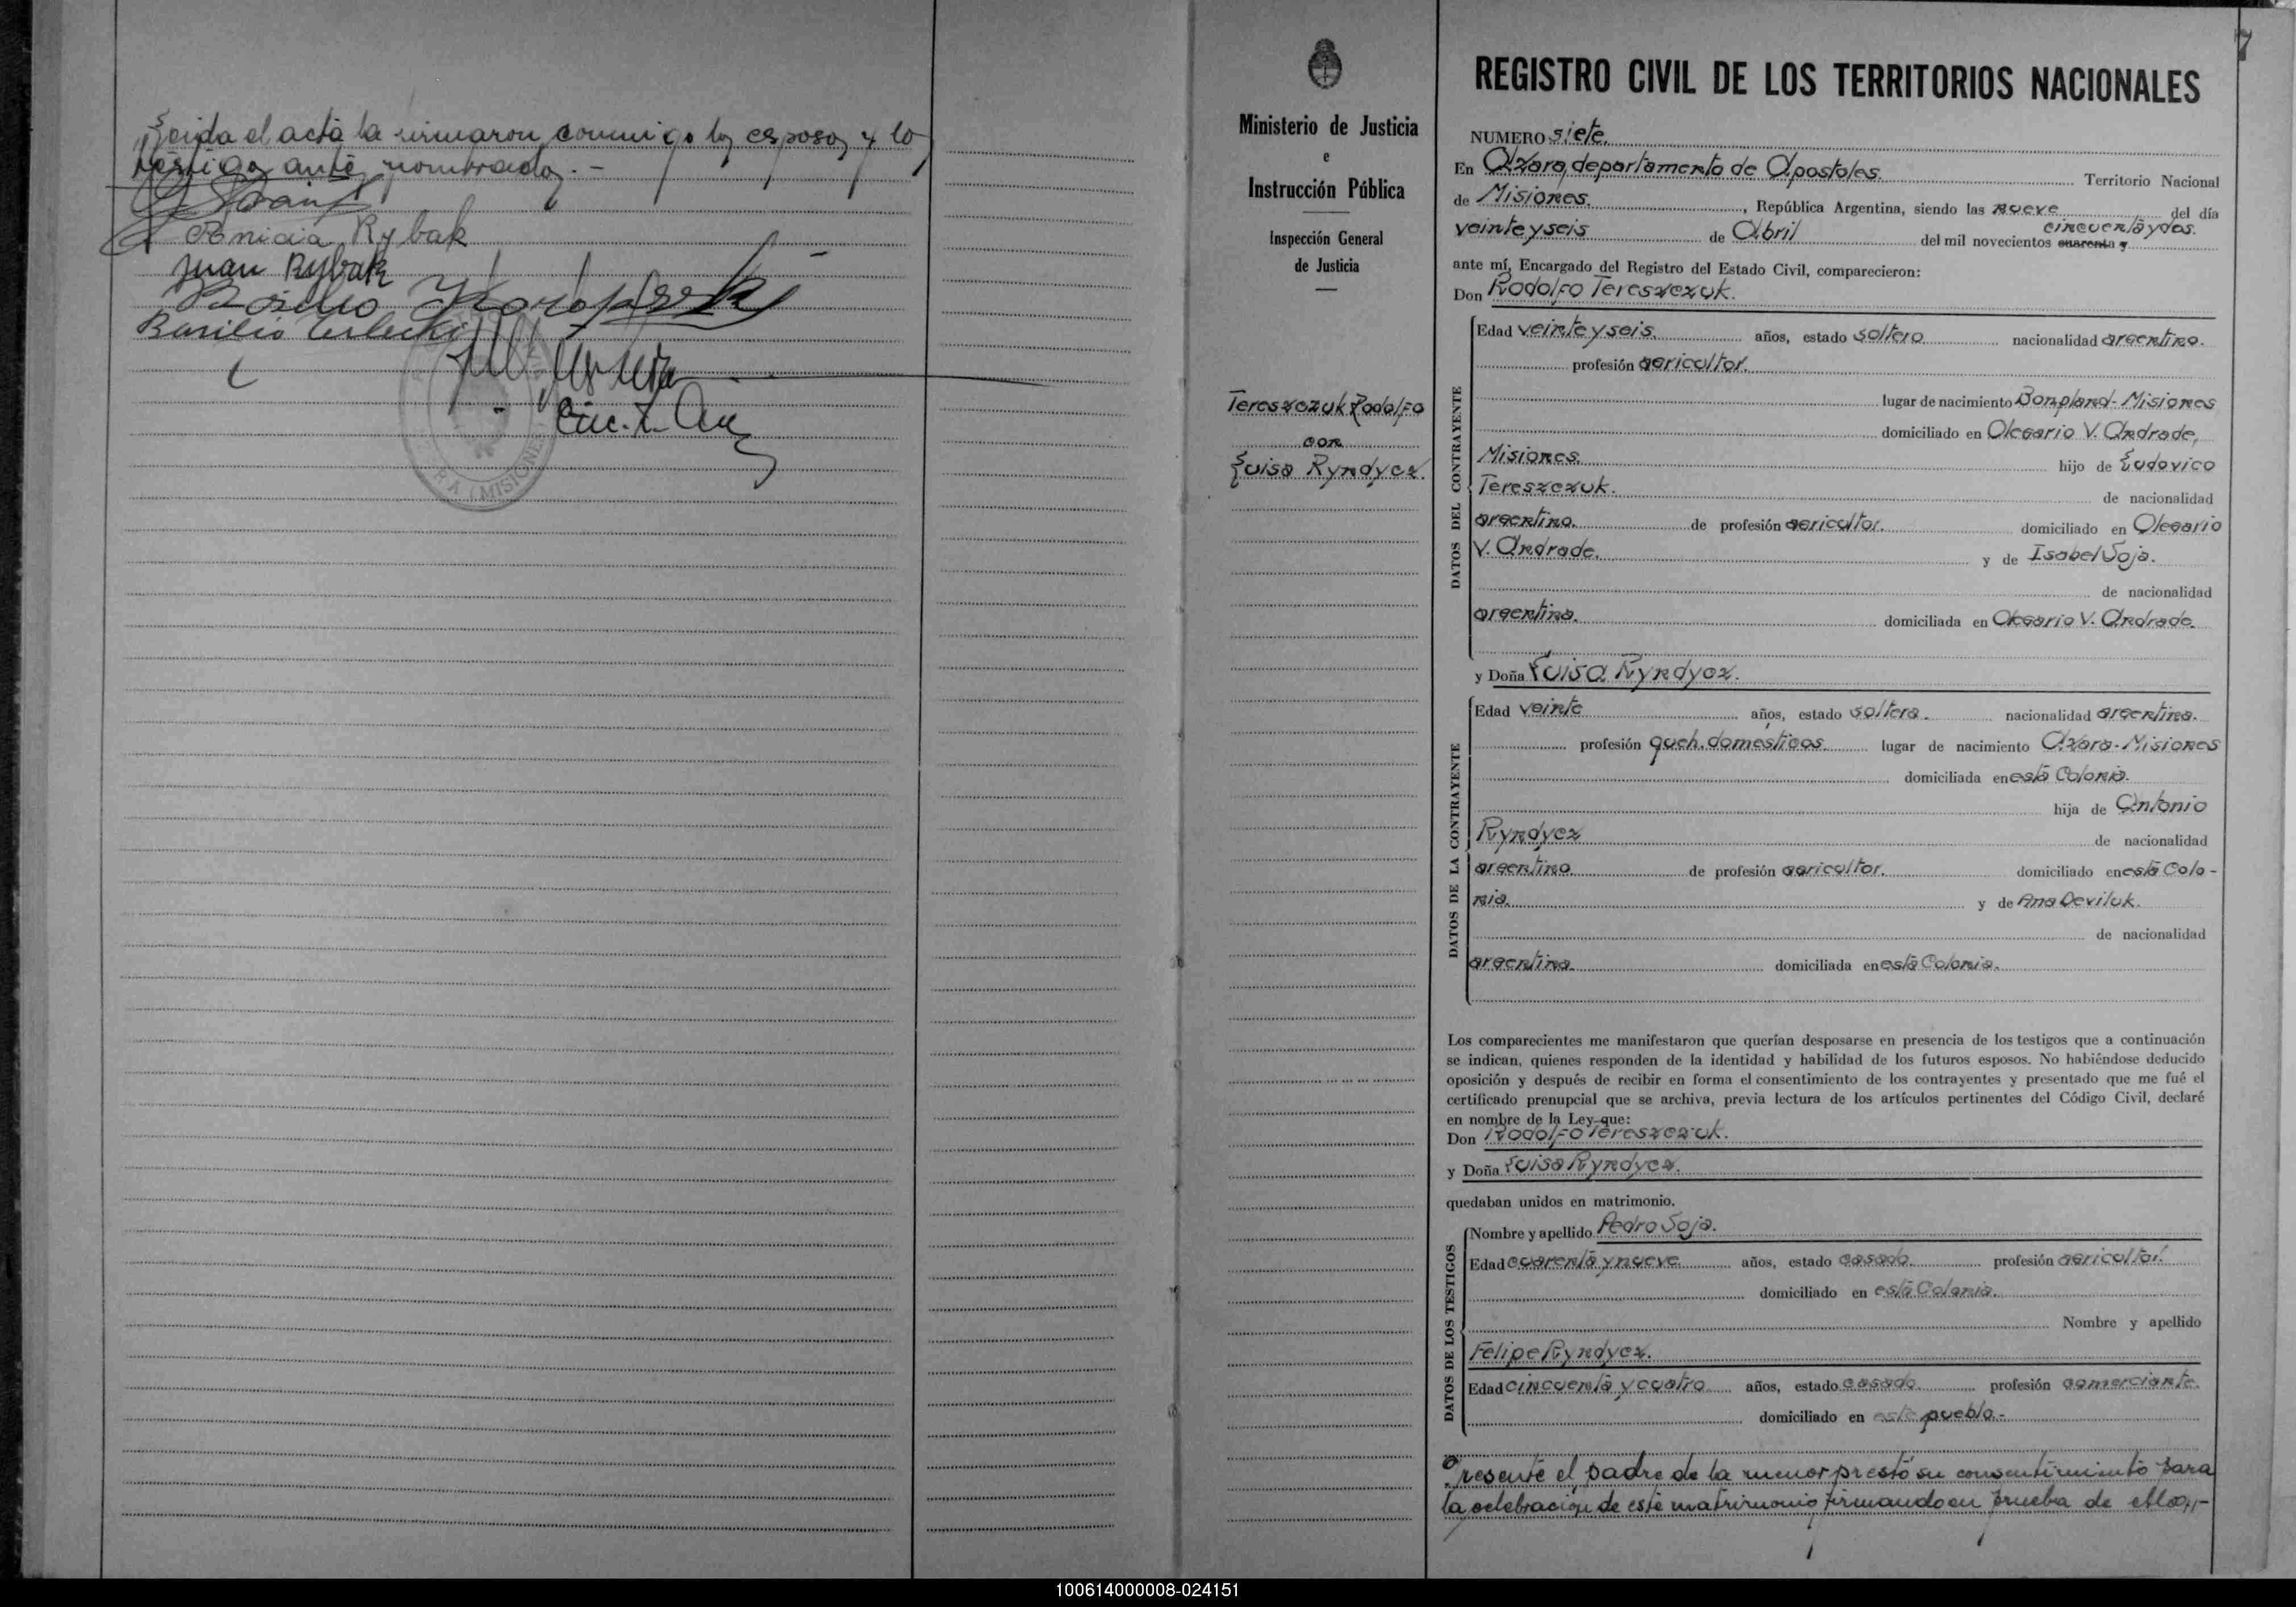 Leida el acta la firmaron conmigo los esposos y los
testigos antes nombrados. -
Rybak
Juan Rybak
Basilio
(MISIONES
7
REGISTRO CIVIL DE LOS TERRITORIOS NACIONALES
Ministerio de Justicia
e
Instrucción Pública
Inspección General
de Justicia
Tereszczuk Rodolfo
con
Luisa Ryndycz.
NUMERO siete.
En Azara, departamento de Apostoles. Territorio Nacional
de Misiones. , República Argentina, siendo las nueve del día
veinte y seis de Abril del mil novecientos cuarenta y cincuenta y dos.
ante mí, Encargado del Registro del Estado Civil, comparecieron:
Don Rodolfo Tereszczuk.
DATOS DEL CONTRAYENTE
Edad veinte y seis. años, estado soltero nacionalidad argentino.
profesión agricultor.
lugar de nacimiento Bonpland - Misiones
domiciliado en Olegario V. Andrade,
Misiones. hijo de Ludovico
Tereszczuk. de nacionalidad
argentino. de profesión agricultor. domiciliado en Olegario
V. Andrade. y de Isabel Soja.
de nacionalidad
argentina. domiciliada en Olegario V. Andrade.
y Doña Luisa Ryndycz.
DATOS DE LA CONTRAYENTE
Edad veinte años, estado soltera. nacionalidad argentina.
profesión queh. domesticos lugar de nacimiento Azara - Misiones
domiciliada en esta Colonia.
hija de Antonio
Ryndycz de nacionalidad
argentino de profesión agricultor. domiciliado en esta Colo-
nia. y de Ana Deviluk.
de nacionalidad
argentina. domiciliada en esta Colonia.
Los comparecientes me manifestaron que querían desposarse en presencia de los testigos que a continuación
se indican, quienes responden de la identidad y habilidad de los futuros esposos. No habiéndose deducido
oposición y después de recibir en forma el consentimiento de los contrayentes y presentado que me fué el
certificado prenupcial que se archiva, previa lectura de los artículos pertinentes del Código Civil, declaré
en nombre de la Ley que:
Don Rodolfo Tereszczuk.
y Doña Luisa Ryndycz.
quedaban unidos en matrimonio.
DATOS DE LOS TESTIGOS
Nombre y apellido Pedro Soja.
Edad cuarenta y nueve años, estado casado. profesión agricultor.
domiciliado en esta Colonia.
Nombre y apellido
Felipe Ryndycz.
Edad cincuenta y cuatro años, estado casado. profesión comerciante.
domiciliado en este pueblo.-
Presente el padre de la menor prestó su consentimiento para
la celebración de este matrimonio firmando en prueba de ello.-
100614000008-024151